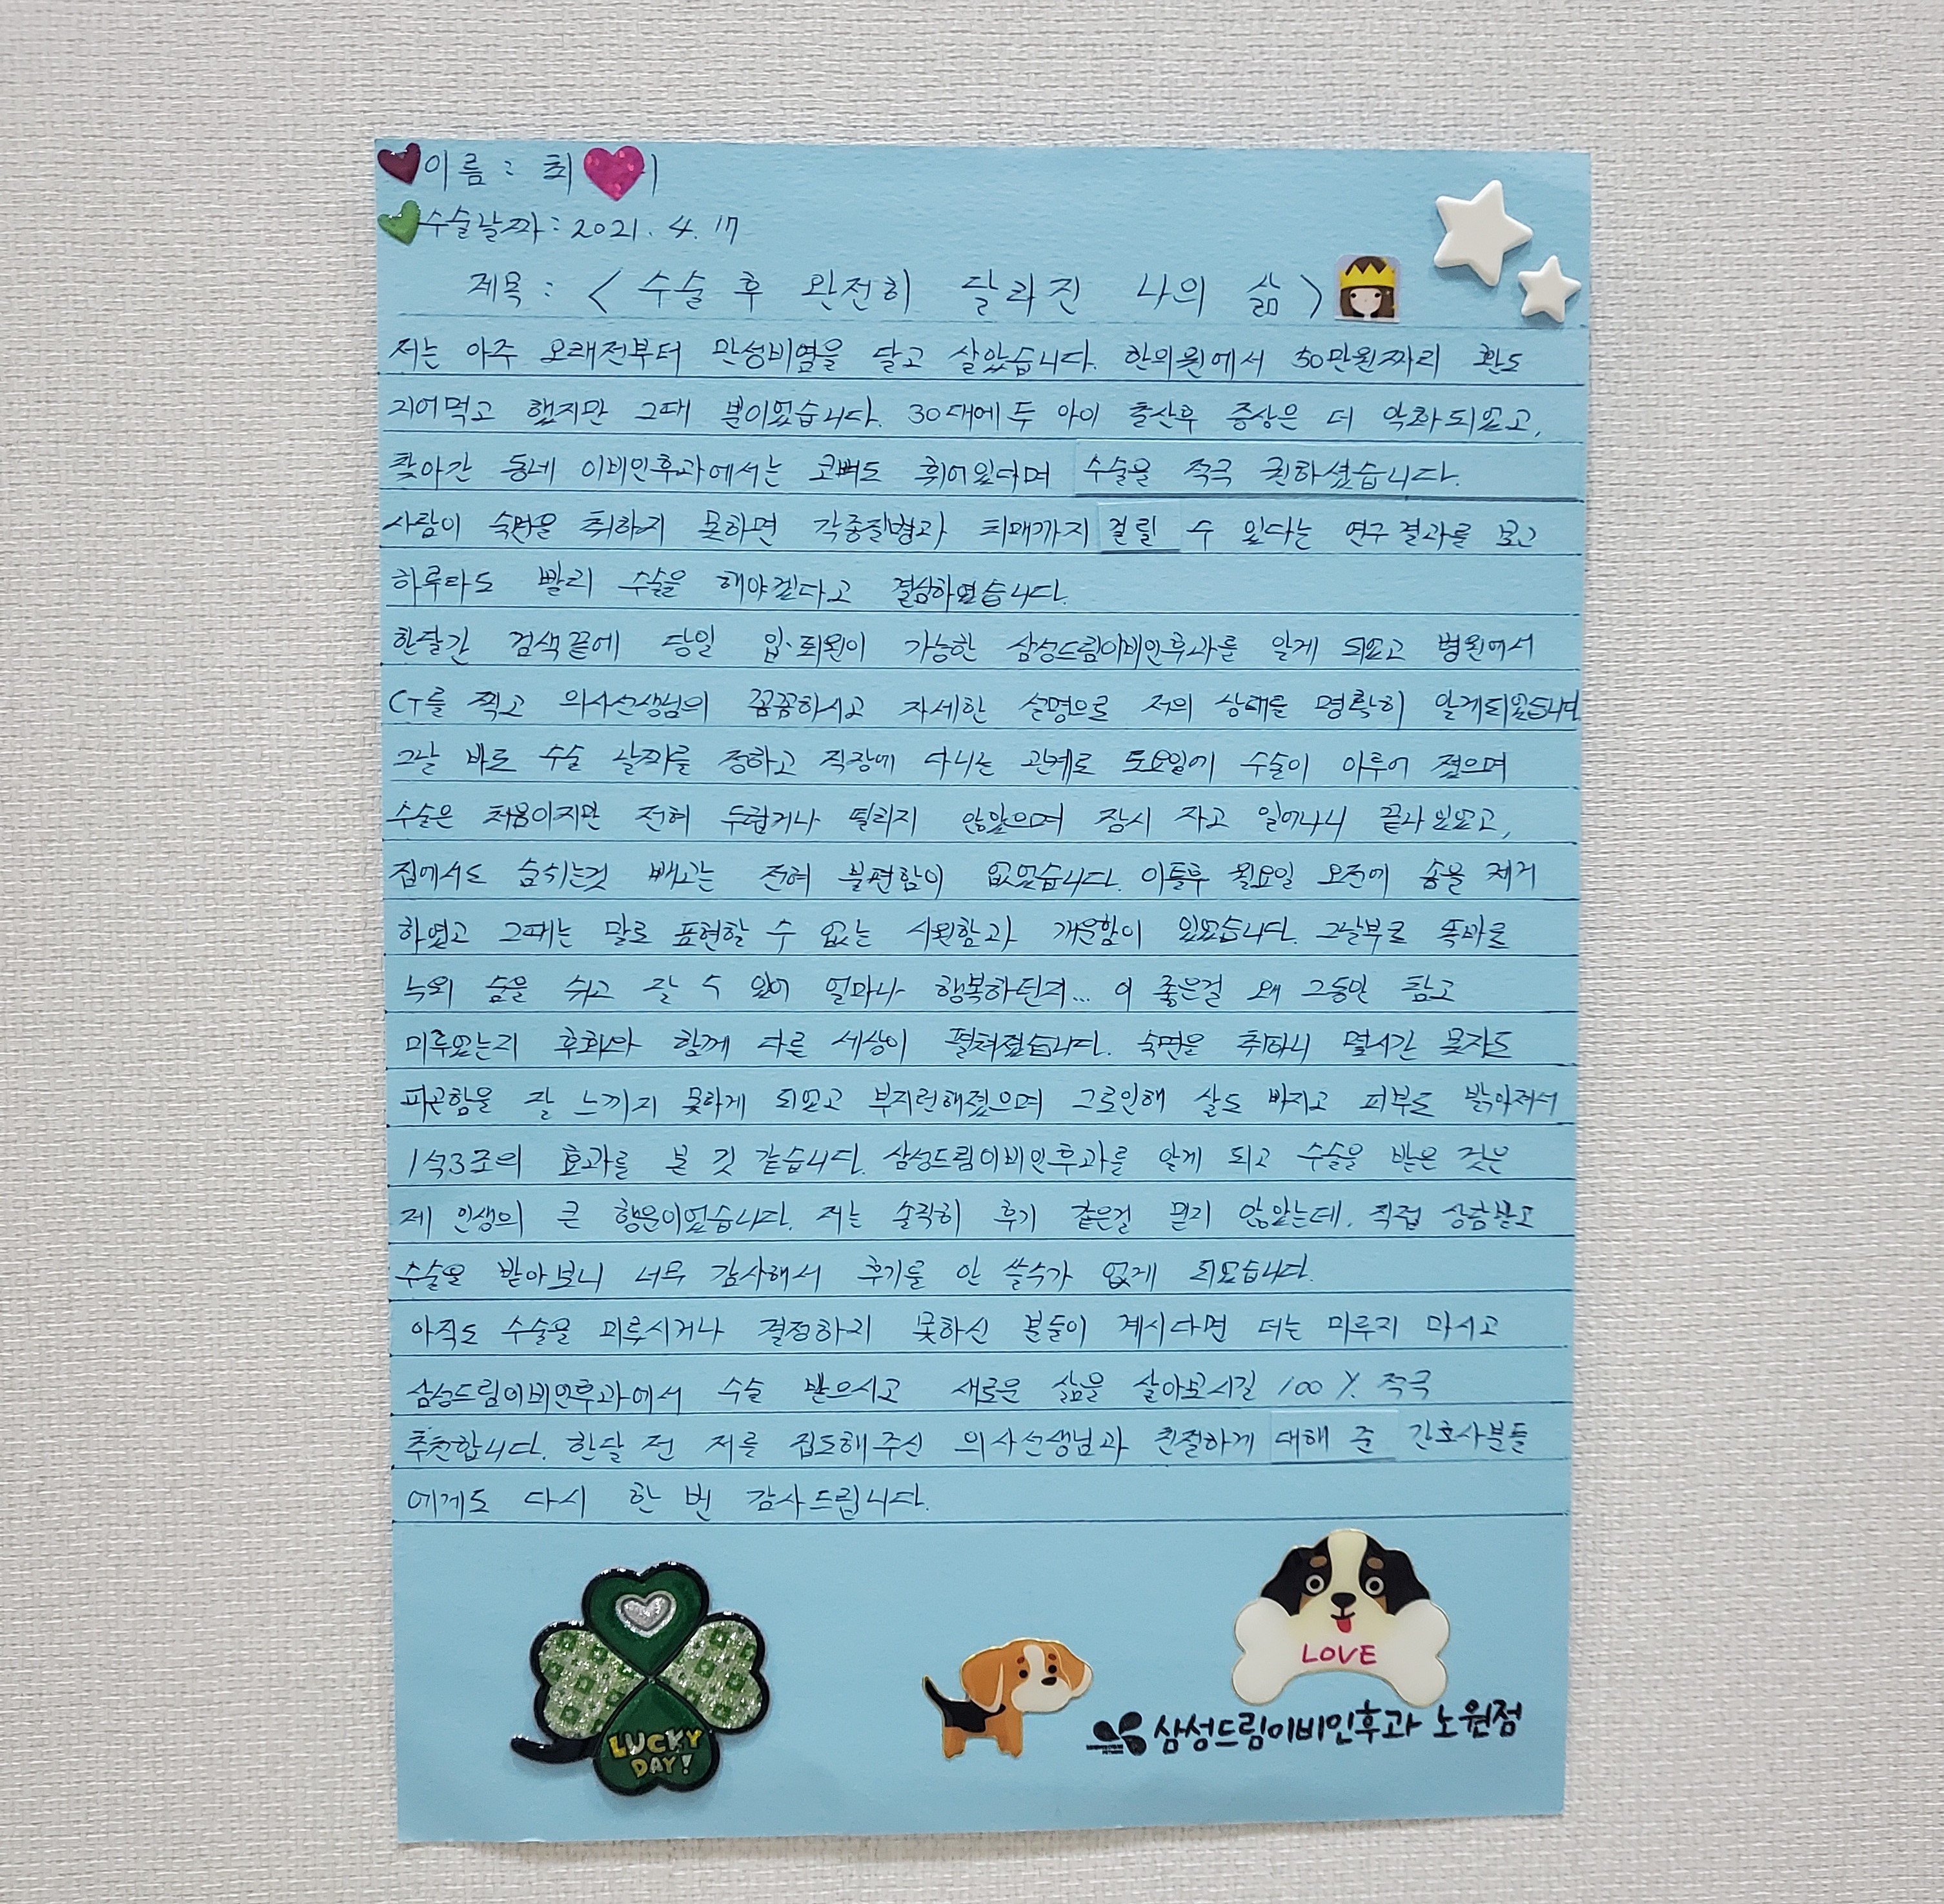 이름 : 최
수술날짜 : 2021. 4. 17
제목 : < 수술 후 완전히 달라진 나의 삶 >
저는 아주 오래전부터 만성비염을 달고 살았습니다. 한의원에서 50만원짜리 환도
지어먹고 했지만 그때 뿐이었습니다. 30대에 두 아이 출산후 증상은 더 악화되었고,
찾아간 동네 이비인후과에서는 코뼈도 휘어있다며 수술을 적극 권하셨습니다.
사람이 숙면을 취하지 못하면 각종질병과 치매까지 걸릴 수 있다는 연구결과를 보고
하루라도 빨리 수술을 해야겠다고 결심하였습니다.
한달간 검색끝에 당일 입·퇴원이 가능한 삼성드림이비인후과를 알게 되었고 병원에서
CT를 찍고 의사선생님의 꼼꼼하시고 자세한 설명으로 저의 상태를 명확히 알게되었습니다
그날 바로 수술 날짜를 정하고 직장에 다니는 관계로 토요일에 수술이 이루어 졌으며
수술은 처음이지만 전혀 두렵거나 떨리지 않았으며 잠시 자고 일어나니 끝나있었고,
집에서도 숨쉬는것 빼고는 전혀 불편함이 없었습니다. 이틀후 월요일 오전에 솜을 제거
하였고 그때는 말로 표현할 수 없는 시원함과 개운함이 있었습니다. 그날부로 똑바로
누워 숨을 쉬고 잘 수 있어 얼마나 행복하던지... 이 좋은걸 왜 그동안 참고
미루었는지 후회와 함께 다른 세상이 펼쳐졌습니다. 숙면을 취하니 몇시간 못자도
피곤함을 잘 느끼지 못하게 되었고 부지런해졌으며 그로인해 살도 빠지고 피부도 밝아져서
1석3조의 효과를 본 것 같습니다. 삼성드림이비인후과를 알게 되고 수술을 받은 것은
제 인생의 큰 행운이었습니다. 저는 솔직히 후기 같은걸 믿지 않았는데, 직접 상담받고
수술을 받아보니 너무 감사해서 후기를 안 쓸수가 없게 되었습니다.
아직도 수술을 미루시거나 결정하지 못하신 분들이 계시다면 더는 미루지 마시고
삼성드림이비인후과에서 수술 받으시고 새로운 삶을 살아보시길 100% 적극
추천합니다. 한달 전 저를 집도해주신 의사선생님과 친절하게 대해 준 간호사분들
에게도 다시 한 번 감사드립니다.
LOVE
LUCKY
DAY!
삼성드림이비인후과 노원점